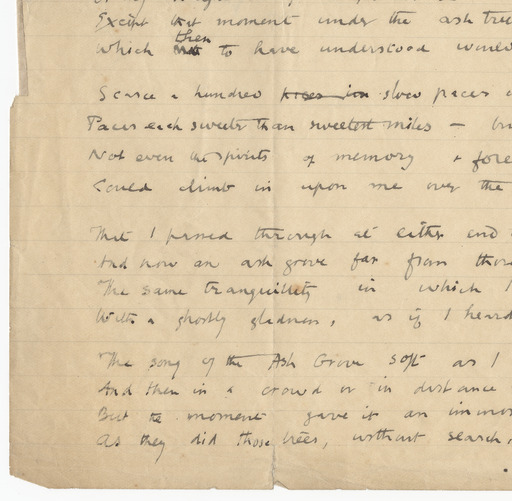 Except that moment under the ash tree
which then to have understood would
Scarce a hundred paces in slow paces
Paces each sweeter than sweetest miles – but
Not even the spirits of memory & fore
Could climb in upon me over the
That I passed through at either end
And now an ash grove far from those
The same tranquillity in which I
With a ghostly gladness, as if I heard
The song of the Ash Grove soft as I
And then in a crowd or in distance
But the moment gave it an immor
As they did those trees, without search